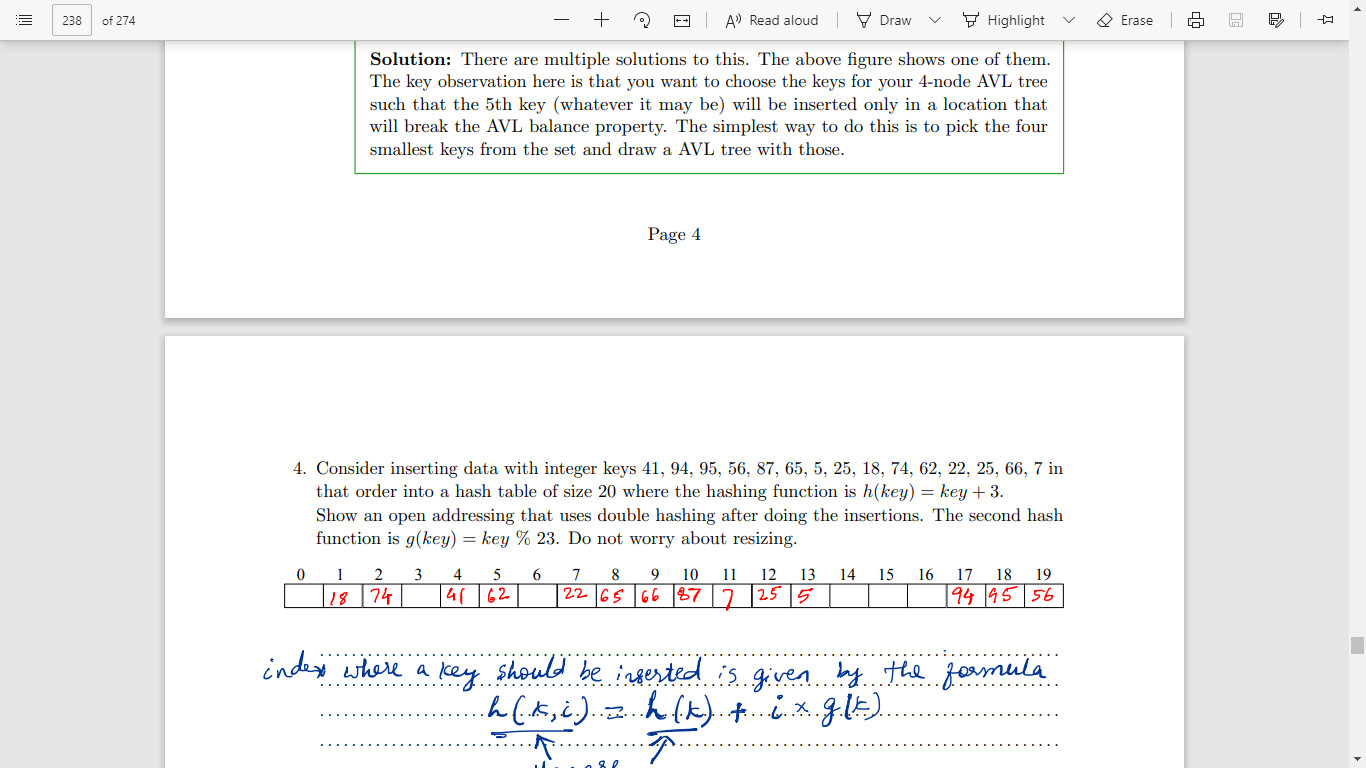 238 of 274 Read aloud Draw Highlight Erase
Solution: There are multiple solutions to this. The above figure shows one of them.
The key observation here is that you want to choose the keys for your 4-node AVL tree
such that the 5th key (whatever it may be) will be inserted only in a location that
will break the AVL balance property. The simplest way to do this is to pick the four
smallest keys from the set and draw a AVL tree with those.
Page 4
4. Consider inserting data with integer keys 41, 94, 95, 56, 87, 65, 5, 25, 18, 74, 62, 22, 25, 66, 7 in
that order into a hash table of size 20 where the hashing function is h(key) = key + 3.
Show an open addressing that uses double hashing after doing the insertions. The second hash
function is g(key) = key % 23. Do not worry about resizing.
0 1 2 3 4 5 6 7 8 9 10 11 12 13 14 15 16 17 18 19
18 74 41 62 22 65 66 87 7 25 5 94 95 56
index where a key should be inserted is given by the formula
h(k,i) = h(k) + i × g(k)